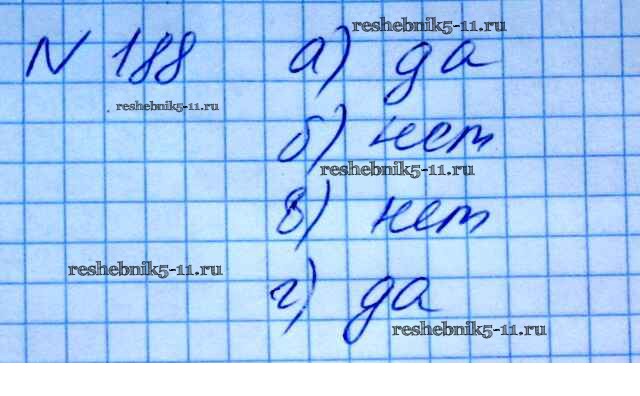 reshebnik5-11.ru
N 188 а) да
reshebnik5-11.ru
б) нет
reshebnik5-11.ru
в) нет
reshebnik5-11.ru
г) да
reshebnik5-11.ru